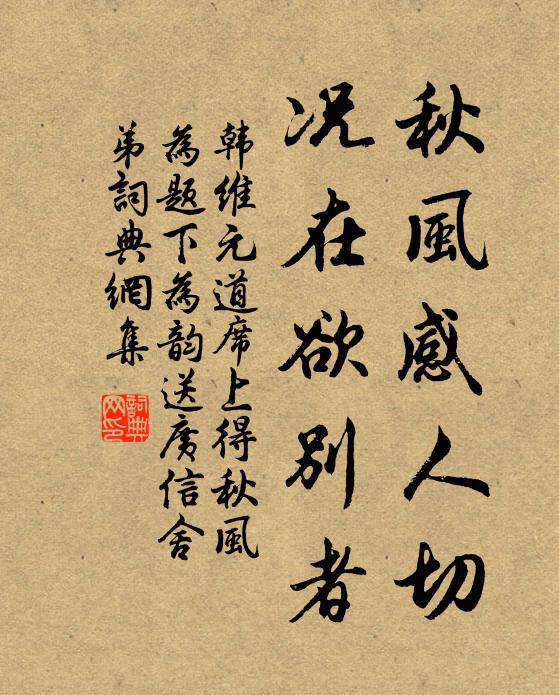 秋風感人切
况在欲别者
韩維元道席上得秋風
為题下為韵送廣信舍
弟詞典網集
詞典网印